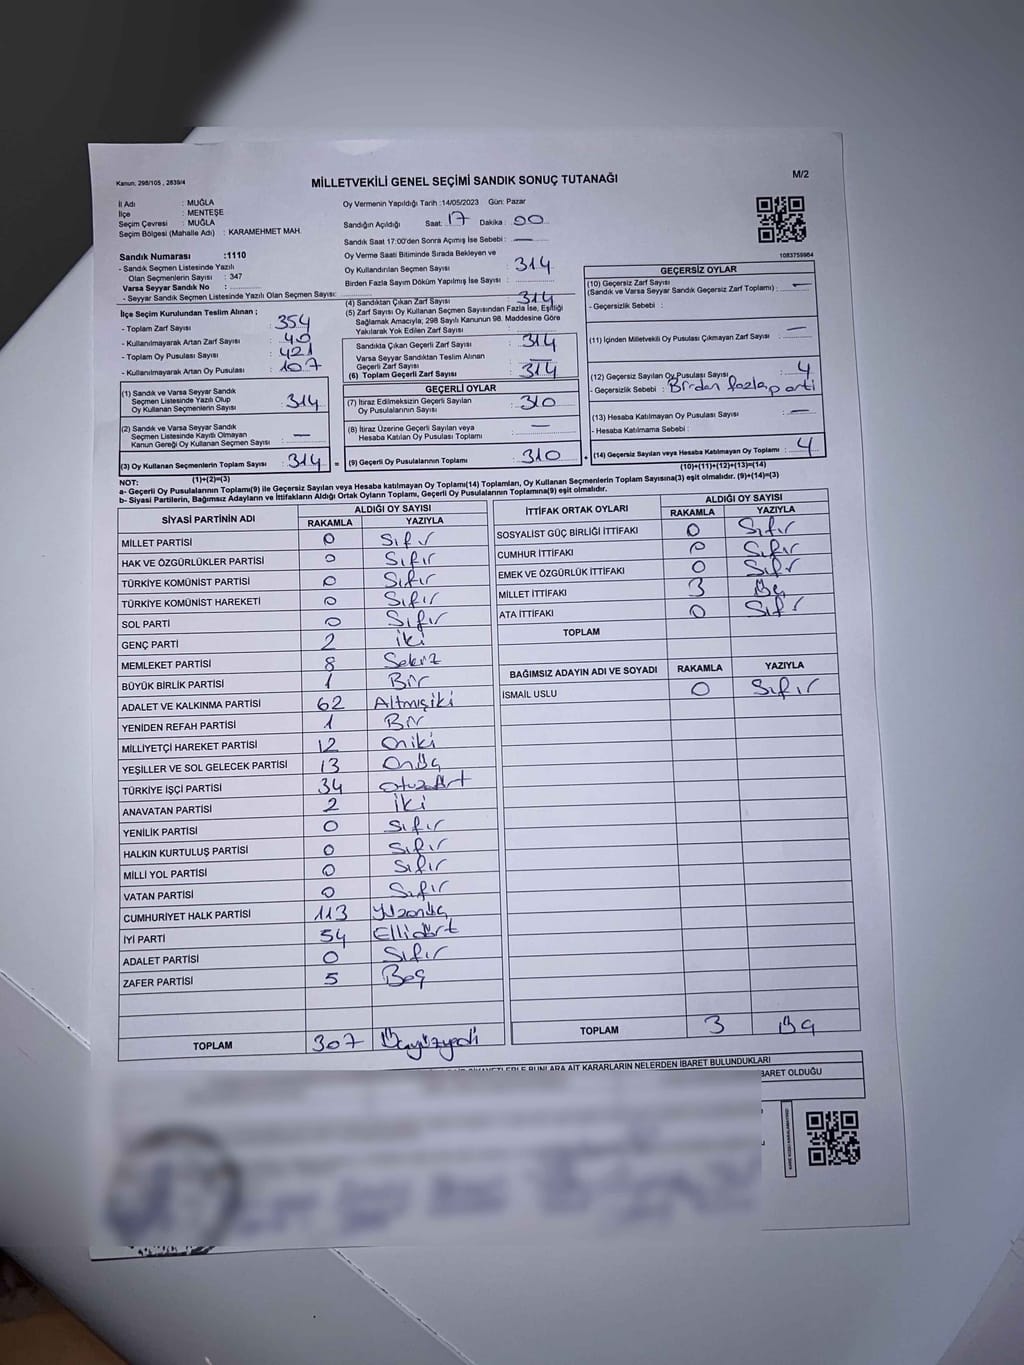 Kanun: 298/105 , 2839/4
MİLLETVEKİLİ GENEL SEÇİMİ SANDIK SONUÇ TUTANAĞI
M/2
İl Adı : MUĞLA
İlçe : MENTEŞE
Seçim Çevresi : MUĞLA
Seçim Bölgesi (Mahalle Adı) : KARAMEHMET MAH.
Sandık Numarası :1110
- Sandık Seçmen Listesinde Yazılı
Olan Seçmenlerin Sayısı : 347
Varsa Seyyar Sandık No :
- Seyyar Sandık Seçmen Listesinde Yazılı Olan Seçmen Sayısı:
İlçe Seçim Kurulundan Teslim Alınan ;
- Toplam Zarf Sayısı : 354
- Kullanılmayarak Artan Zarf Sayısı : 40
- Toplam Oy Pusulası Sayısı : 421
- Kullanılmayarak Artan Oy Pusulası : 107
(1) Sandık ve Varsa Seyyar Sandık
Seçmen Listesinde Yazılı Olup
Oy Kullanan Seçmenlerin Sayısı : 314
(2) Sandık ve Varsa Seyyar Sandık
Seçmen Listesinde Kayıtlı Olmayan
Kanun Gereği Oy Kullanan Seçmen Sayısı : —
(3) Oy Kullanan Seçmenlerin Toplam Sayısı : 314
(1)+(2)=(3)
Oy Vermenin Yapıldığı Tarih :14/05/2023 Gün: Pazar
Sandığın Açıldığı Saat: 17 Dakika : 00
Sandık Saat 17:00'den Sonra Açımış İse Sebebi : —
Oy Verme Saati Bitiminde Sırada Bekleyen ve
Oy Kullandırılan Seçmen Sayısı : 314
Birden Fazla Sayım Döküm Yapılmış İse Sayısı :
(4) Sandıktan Çıkan Zarf Sayısı : 314
(5) Zarf Sayısı Oy Kullanan Seçmen Sayısından Fazla İse, Eşitliği
Sağlamak Amacıyla; 298 Sayılı Kanunun 98. Maddesine Göre
Yakılarak Yok Edilen Zarf Sayısı :
Sandıkta Çıkan Geçerli Zarf Sayısı : 314
Varsa Seyyar Sandıktan Teslim Alınan
Geçerli Zarf Sayısı : —
(6) Toplam Geçerli Zarf Sayısı : 314
GEÇERLİ OYLAR
(7) İtiraz Edilmeksizin Geçerli Sayılan
Oy Pusulalarının Sayısı : 310
(8) İtiraz Üzerine Geçerli Sayılan veya
Hesaba Katılan Oy Pusulası Toplamı : —
= (9) Geçerli Oy Pusulalarının Toplamı : 310
1083759964
GEÇERSİZ OYLAR
(10) Geçersiz Zarf Sayısı
(Sandık ve Varsa Seyyar Sandık Geçersiz Zarf Toplamı) : —
- Geçersizlik Sebebi :
(11) İçinden Milletvekili Oy Pusulası Çıkmayan Zarf Sayısı : —
(12) Geçersiz Sayılan Oy Pusulası Sayısı : 4
- Geçersizlik Sebebi : Birden fazla parti
(13) Hesaba Katılmayan Oy Pusulası Sayısı : —
- Hesaba Katılmama Sebebi :
(14) Geçersiz Sayılan veya Hesaba Katılmayan Oy Toplamı : 4
(10)+(11)+(12)+(13)=(14)
NOT:
a- Geçerli Oy Pusulalarının Toplamı(9) ile Geçersiz Sayılan veya Hesaba katılmayan Oy Toplamı(14) Toplamları, Oy Kullanan Seçmenlerin Toplam Sayısına(3) eşit olmalıdır. (9)+(14)=(3)
b- Siyasi Partilerin, Bağımsız Adayların ve İttifakların Aldığı Ortak Oyların Toplamı, Geçerli Oy Pusulalarının Toplamına(9) eşit olmalıdır.
SİYASİ PARTİNİN ADI ALDIĞI OY SAYISI
RAKAMLA YAZIYLA
MİLLET PARTİSİ 0 Sıfır
HAK VE ÖZGÜRLÜKLER PARTİSİ 0 Sıfır
TÜRKİYE KOMÜNİST PARTİSİ 0 Sıfır
TÜRKİYE KOMÜNİST HAREKETİ 0 Sıfır
SOL PARTİ 0 Sıfır
GENÇ PARTİ 2 iki
MEMLEKET PARTİSİ 8 Sekiz
BÜYÜK BİRLİK PARTİSİ 1 Bir
ADALET VE KALKINMA PARTİSİ 62 Altmışiki
YENİDEN REFAH PARTİSİ 1 Bir
MİLLİYETÇİ HAREKET PARTİSİ 12 Oniki
YEŞİLLER VE SOL GELECEK PARTİSİ 13 Onüç
TÜRKİYE İŞÇİ PARTİSİ 34 otuzdört
ANAVATAN PARTİSİ 2 iki
YENİLİK PARTİSİ 0 Sıfır
HALKIN KURTULUŞ PARTİSİ 0 Sıfır
MİLLİ YOL PARTİSİ 0 Sıfır
VATAN PARTİSİ 0 Sıfır
CUMHURİYET HALK PARTİSİ 113 Yüzonüç
İYİ PARTİ 54 Ellidört
ADALET PARTİSİ 0 Sıfır
ZAFER PARTİSİ 5 Beş
TOPLAM 307 Üçyüzyedi
İTTİFAK ORTAK OYLARI ALDIĞI OY SAYISI
RAKAMLA YAZIYLA
SOSYALİST GÜÇ BİRLİĞİ İTTİFAKI 0 Sıfır
CUMHUR İTTİFAKI 0 Sıfır
EMEK VE ÖZGÜRLÜK İTTİFAKI 0 Sıfır
MİLLET İTTİFAKI 3 Üç
ATA İTTİFAKI 0 Sıfır
TOPLAM
BAĞIMSIZ ADAYIN ADI VE SOYADI RAKAMLA YAZIYLA
İSMAİL USLU 0 Sıfır
TOPLAM 3 Üç
BUNLARA AİT KARARLARIN NELERDEN İBARET BULUNDUKLARI
BARET OLDUĞU